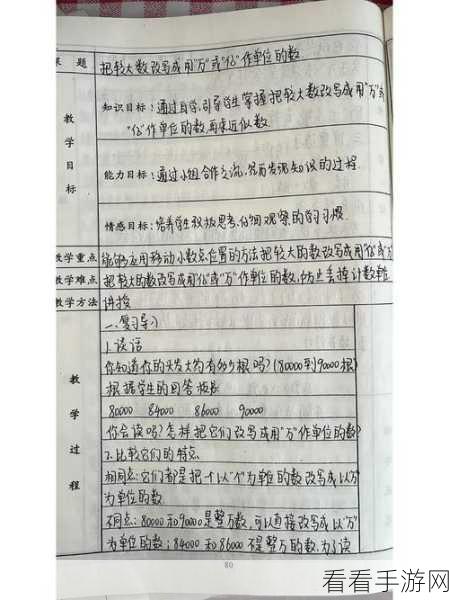 课 题 把较大数改写成用"万"或"亿"作单位的数
教学目标
知识目标:通过自学,引导学生掌握把较大数改写成用"万"或
"亿"作单位的数,再求近似数.
能力目标:通过小组合作交流,
发现知识的过程.
情感目标:培养学生积极思考、仔细观察的学习惯.
教学重点 能够应用移动小数点位置的方法把较大的数改写成用"亿"或"万"
教学难点 把较大的数改写成用"亿"或"万"作单位的数,防止丢掉计数单位
教学方法 讲授
教学过程
一、复习导入
1.谈话
你知道你的头发大约有多少根吗?(80000到90000根)
根据学生的回答板书
80000 84000 86000 90000
你会读吗?怎样把它们改写成用"万"作单位的数?
2.比较它们的特点
相同点:它们都是把一个以"个"为单位的数改写成以"万"
为单位的数.
不同点:80000和90000是整万数,可以直接改写成以"万"
为单位的数;84000和86000不是整万的数,为了读
80
看看手游网
www.kkx.net